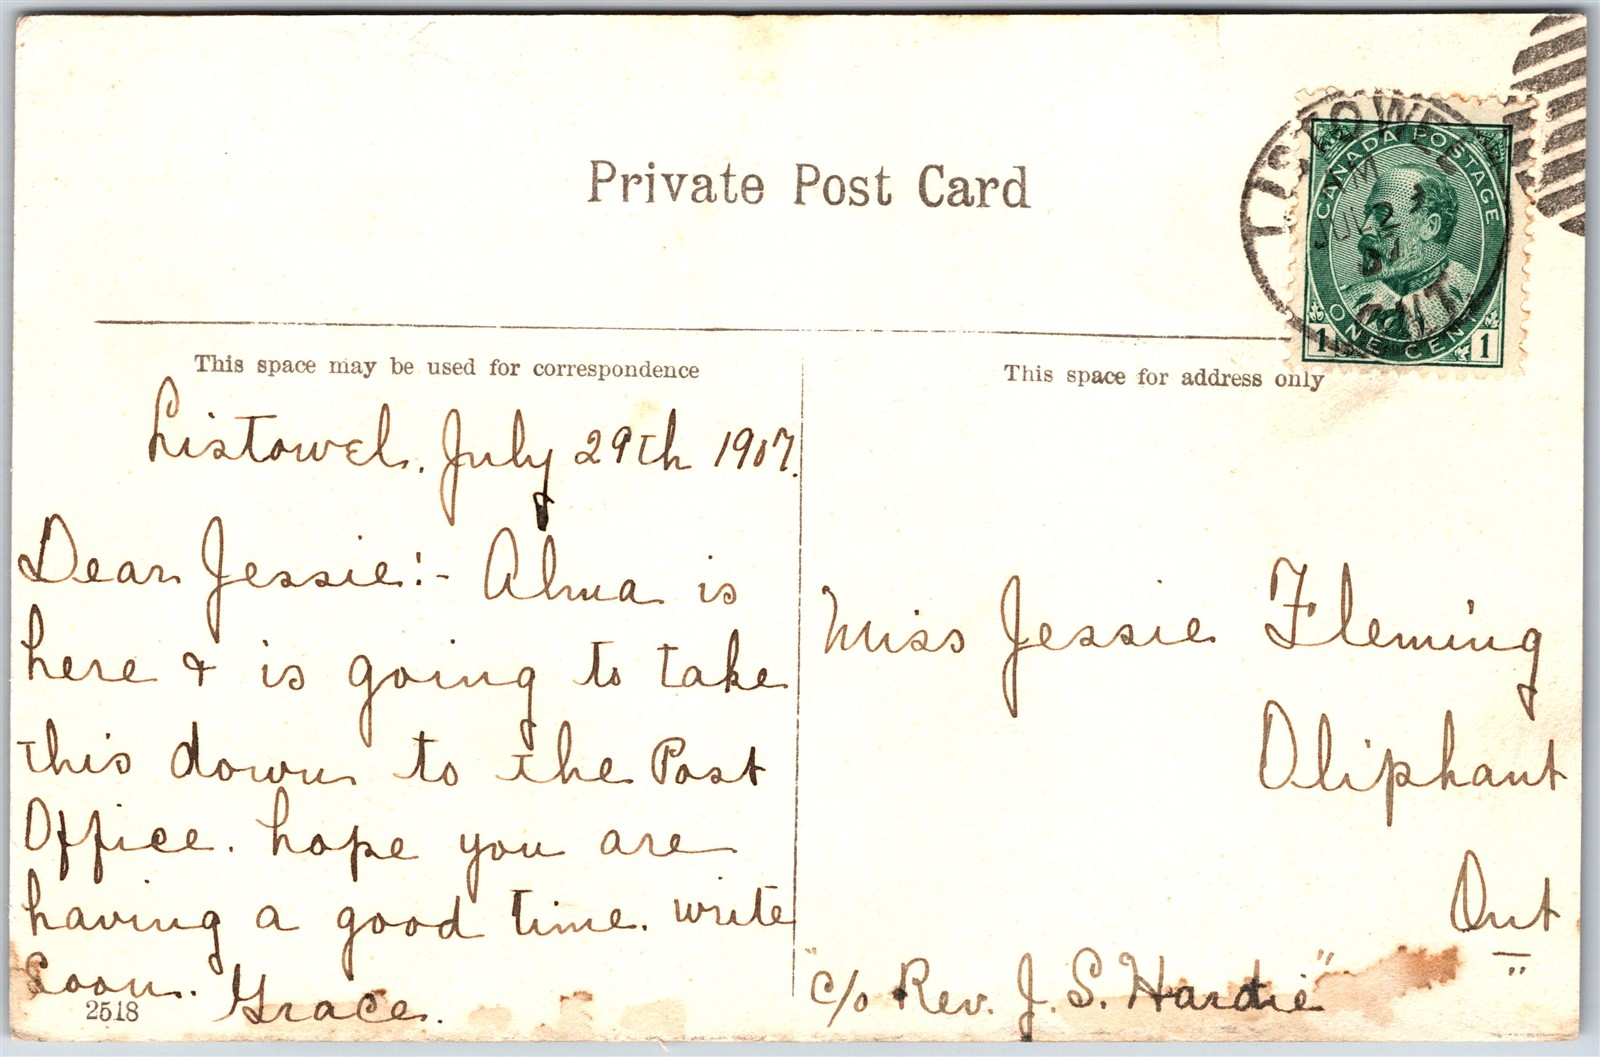 Private Post Card
LISTOWEL
CANADA POSTAGE
M
JUL 2
07
ONT
1 ONE CENT 1
This space may be used for correspondence
This space for address only
Listowel. July 29th 1907.
Dear Jessie:- Alma is
here & is going to take
this down to the Post
Office. hope you are
having a good time. write
soon. Grace.
2518
Miss Jessie Fleming
Oliphant
Ont
"c/o Rev. J. S. Hardie"